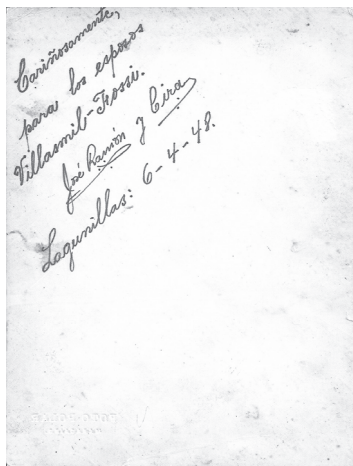 Cariñosamente,
para los esposos
Villasmil-Rossi.
José Ramón y Cira
Lagunillas: 6-4-48.